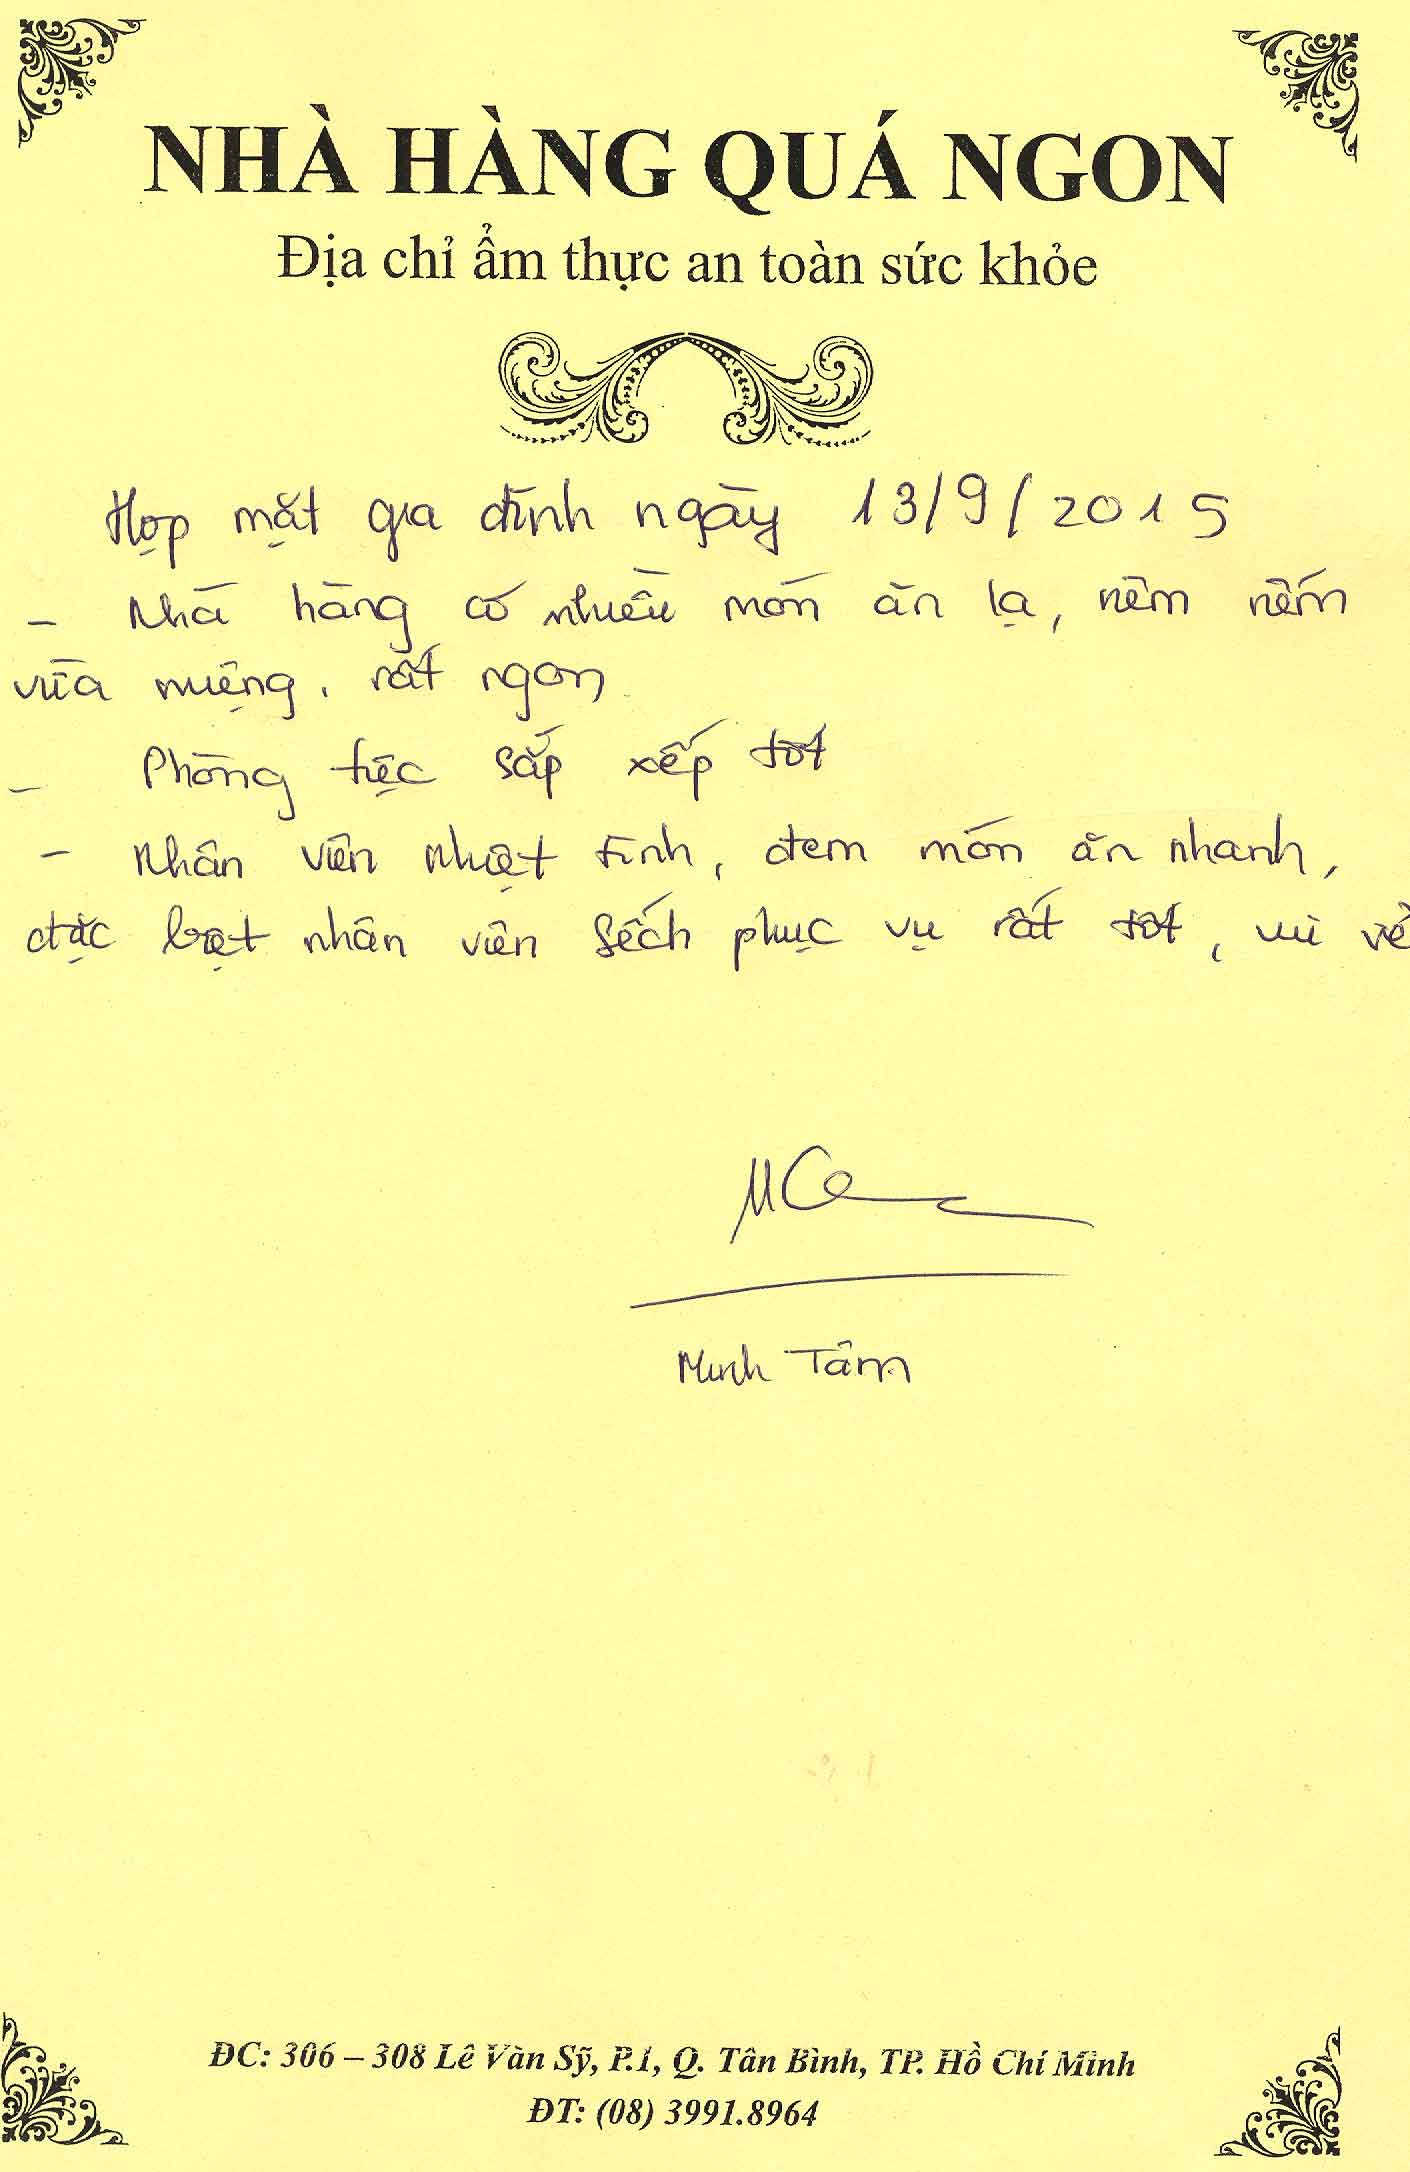 NHÀ HÀNG QUÁ NGON
Địa chỉ ẩm thực an toàn sức khỏe
Họp mặt gia đình ngày 13/9/2015
- Nhà hàng có nhiều món ăn lạ, nêm nếm
vừa miệng, rất ngon
- Phòng tiệc sắp xếp tốt
- Nhân viên nhiệt tình, đem món ăn nhanh,
đặc biệt nhân viên Sếch phục vụ rất tốt, vui vẻ
Minh Tâm
ĐC: 306 – 308 Lê Văn Sỹ, P.1, Q. Tân Bình, TP. Hồ Chí Minh
ĐT: (08) 3991.8964